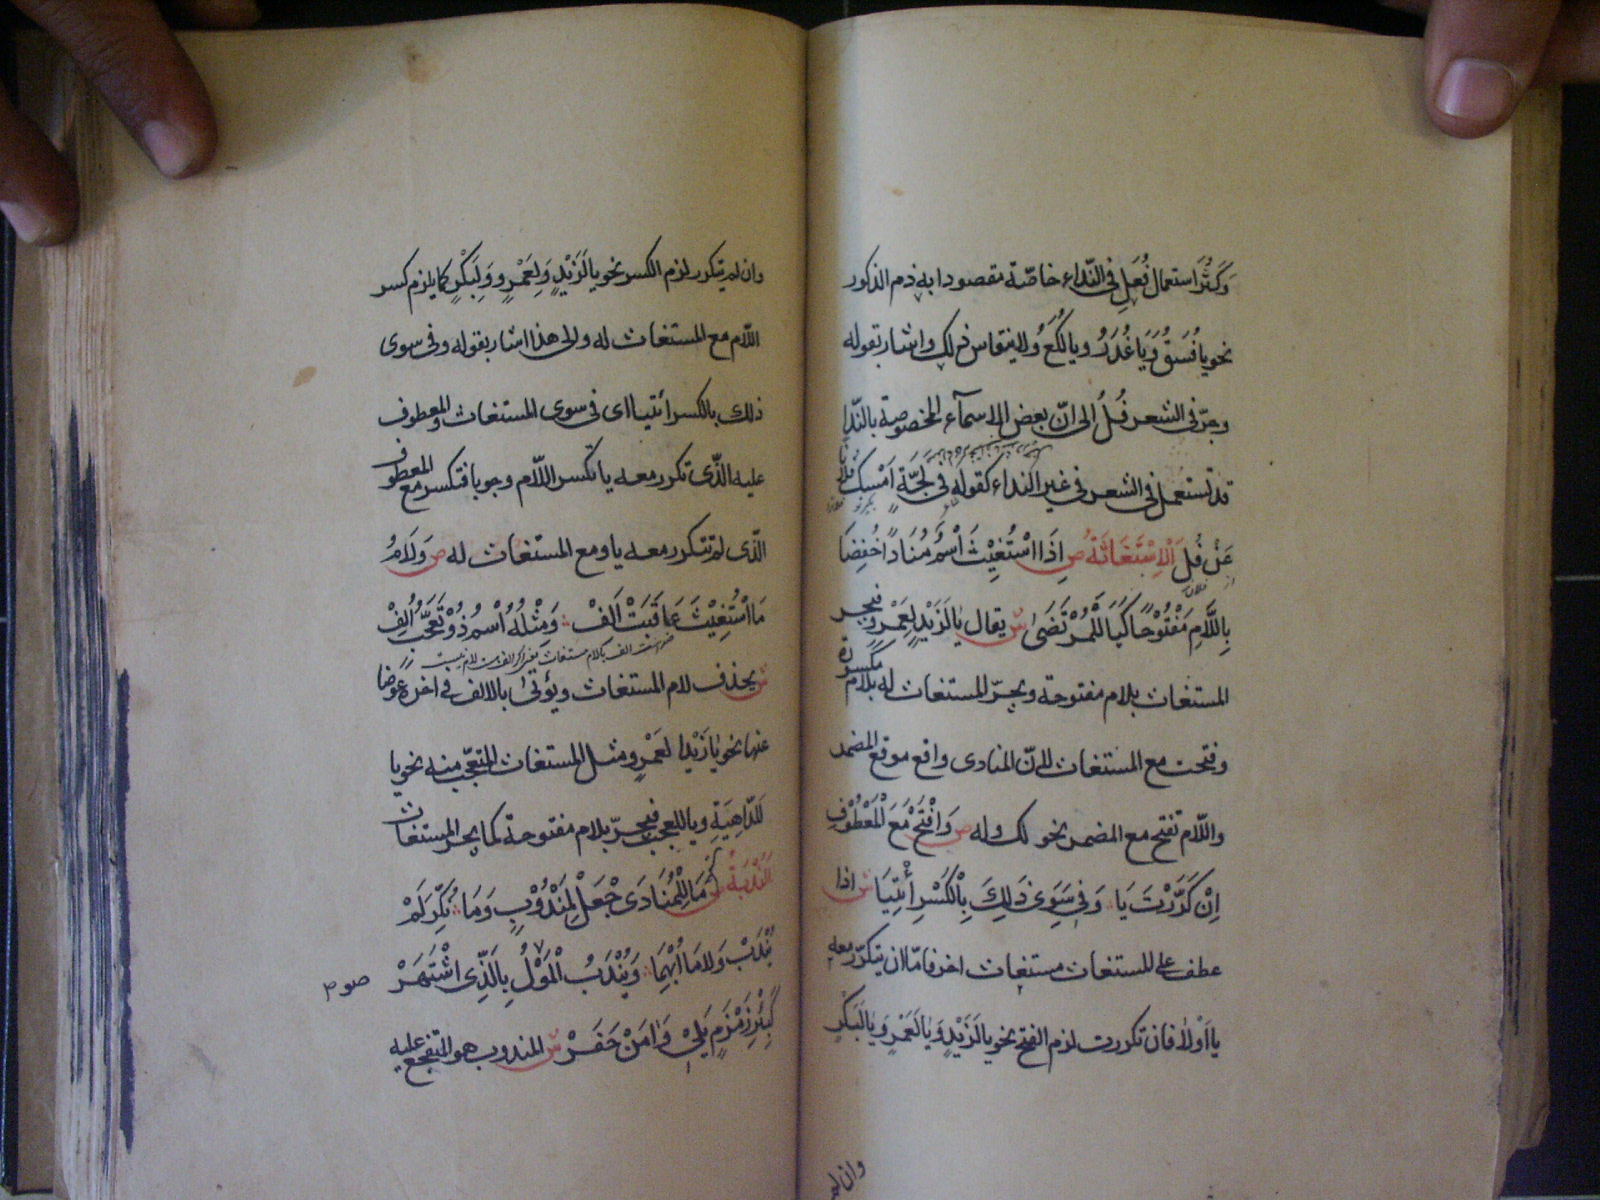 وَكَثُرَ استعمال فُعَلِ فى النّداء خاصّة مقصودا به ذم الذكور
نحو يا فُسَقُ وَيَا غُدَرُ ويا لُكَعُ ولا ينقاس ذلك واشار بقوله
وجرّ فى الشعر فُلُ الى انّ بعض الاسمآء المخصوصة بالنّدا
قد تستعمل فى الشعر فى غير النداء كقوله فى لَجَّةٍ اَمْسِكْ فُلَانًا
عَنْ فُلِ اَلْاِسْتَغَاثَةُ ص اِذَا اسْتُغِيْثَ اَسْمٌ مُنَادًا خُفِضَا
بِاللَّامِ مَفْتُوْحًا كَيَا لَلْمُرْتَضَىٰ ش يقال يا لَزَيْدٍ لِعَمْرٍو فيجر
المستغاث بلام مفتوحة ويجرّ المستغاث له بلام مكسورة
وفتحت مع المستغاث لانّ المنادى واقع موقع المضمر
واللّام تفتح مع المضمر نحو لك وله ص وَافْتَحْ مَعَ الْمَعْطُوْفِ
اِنْ كَرَّرْتَ يَا وَفِى سِوَى ذَلِكَ بِالْكَسْرِ أْتِيَا ش اذا
عطف على المستغاث مستغاث اخر فامّا ان يتكرّر معه
يا اَوْلا فان تكررت لزم الفتح نحو يا لَزَيْدٍ وَيَا لَعَمْرٍو وَيَا لَبَكْرٍ
وان لم
وان لم يتكرر لزم الكسر نحو يا لَزَيْدٍ وَلِعَمْرٍو وَلِبَكْرٍ كما يلزم كسر
اللّام مع المستغاث له والى هذا اشار بقوله وفى سوى
ذلك بالكسر ائتيا اى فى سوى المستغاث والمعطوف
عليه الذّى تكرر معه يا تكسر اللّام وجوبا فتكسر مع المعطوف
الذّى لم تتكرر معه يا ومع المستغاث له ص وَلَامُ
مَا اسْتُغِيْثَ عَاقَبَتْ اَلِفْ وَمِثْلُهُ اسْمٌ ذُوْ تَعَجُّبٍ اُلِفْ
ش يحذف لام المستغاث ويؤتىٰ بالالف فى اخره عوضًا
عنها نحو يا زَيْدا لعَمْرٍو ومثل المستغاث المتعجّب منه نحو يا
لَلدّاهِيَةِ ويا للعجب فيجرّ بلام مفتوحة كما يجر المستغاث
اَلنُّدْبَةُ ص مَا لِلْمُنَادَى اجْعَلْ لِمَنْدُوْبٍ وَمَا نُكِّرَ لَمْ
يُنْدَبْ وَلَا مَا اُبْهِمَا وَيُنْدَبُ الْمَوْصُوْلُ بِالَّذِى اشْتَهَرْ
كَبِئْرِ زَمْزَمٍ يَلِىْ وَامَنْ حَفَرْ ش المندوب هو المتفجع عليه